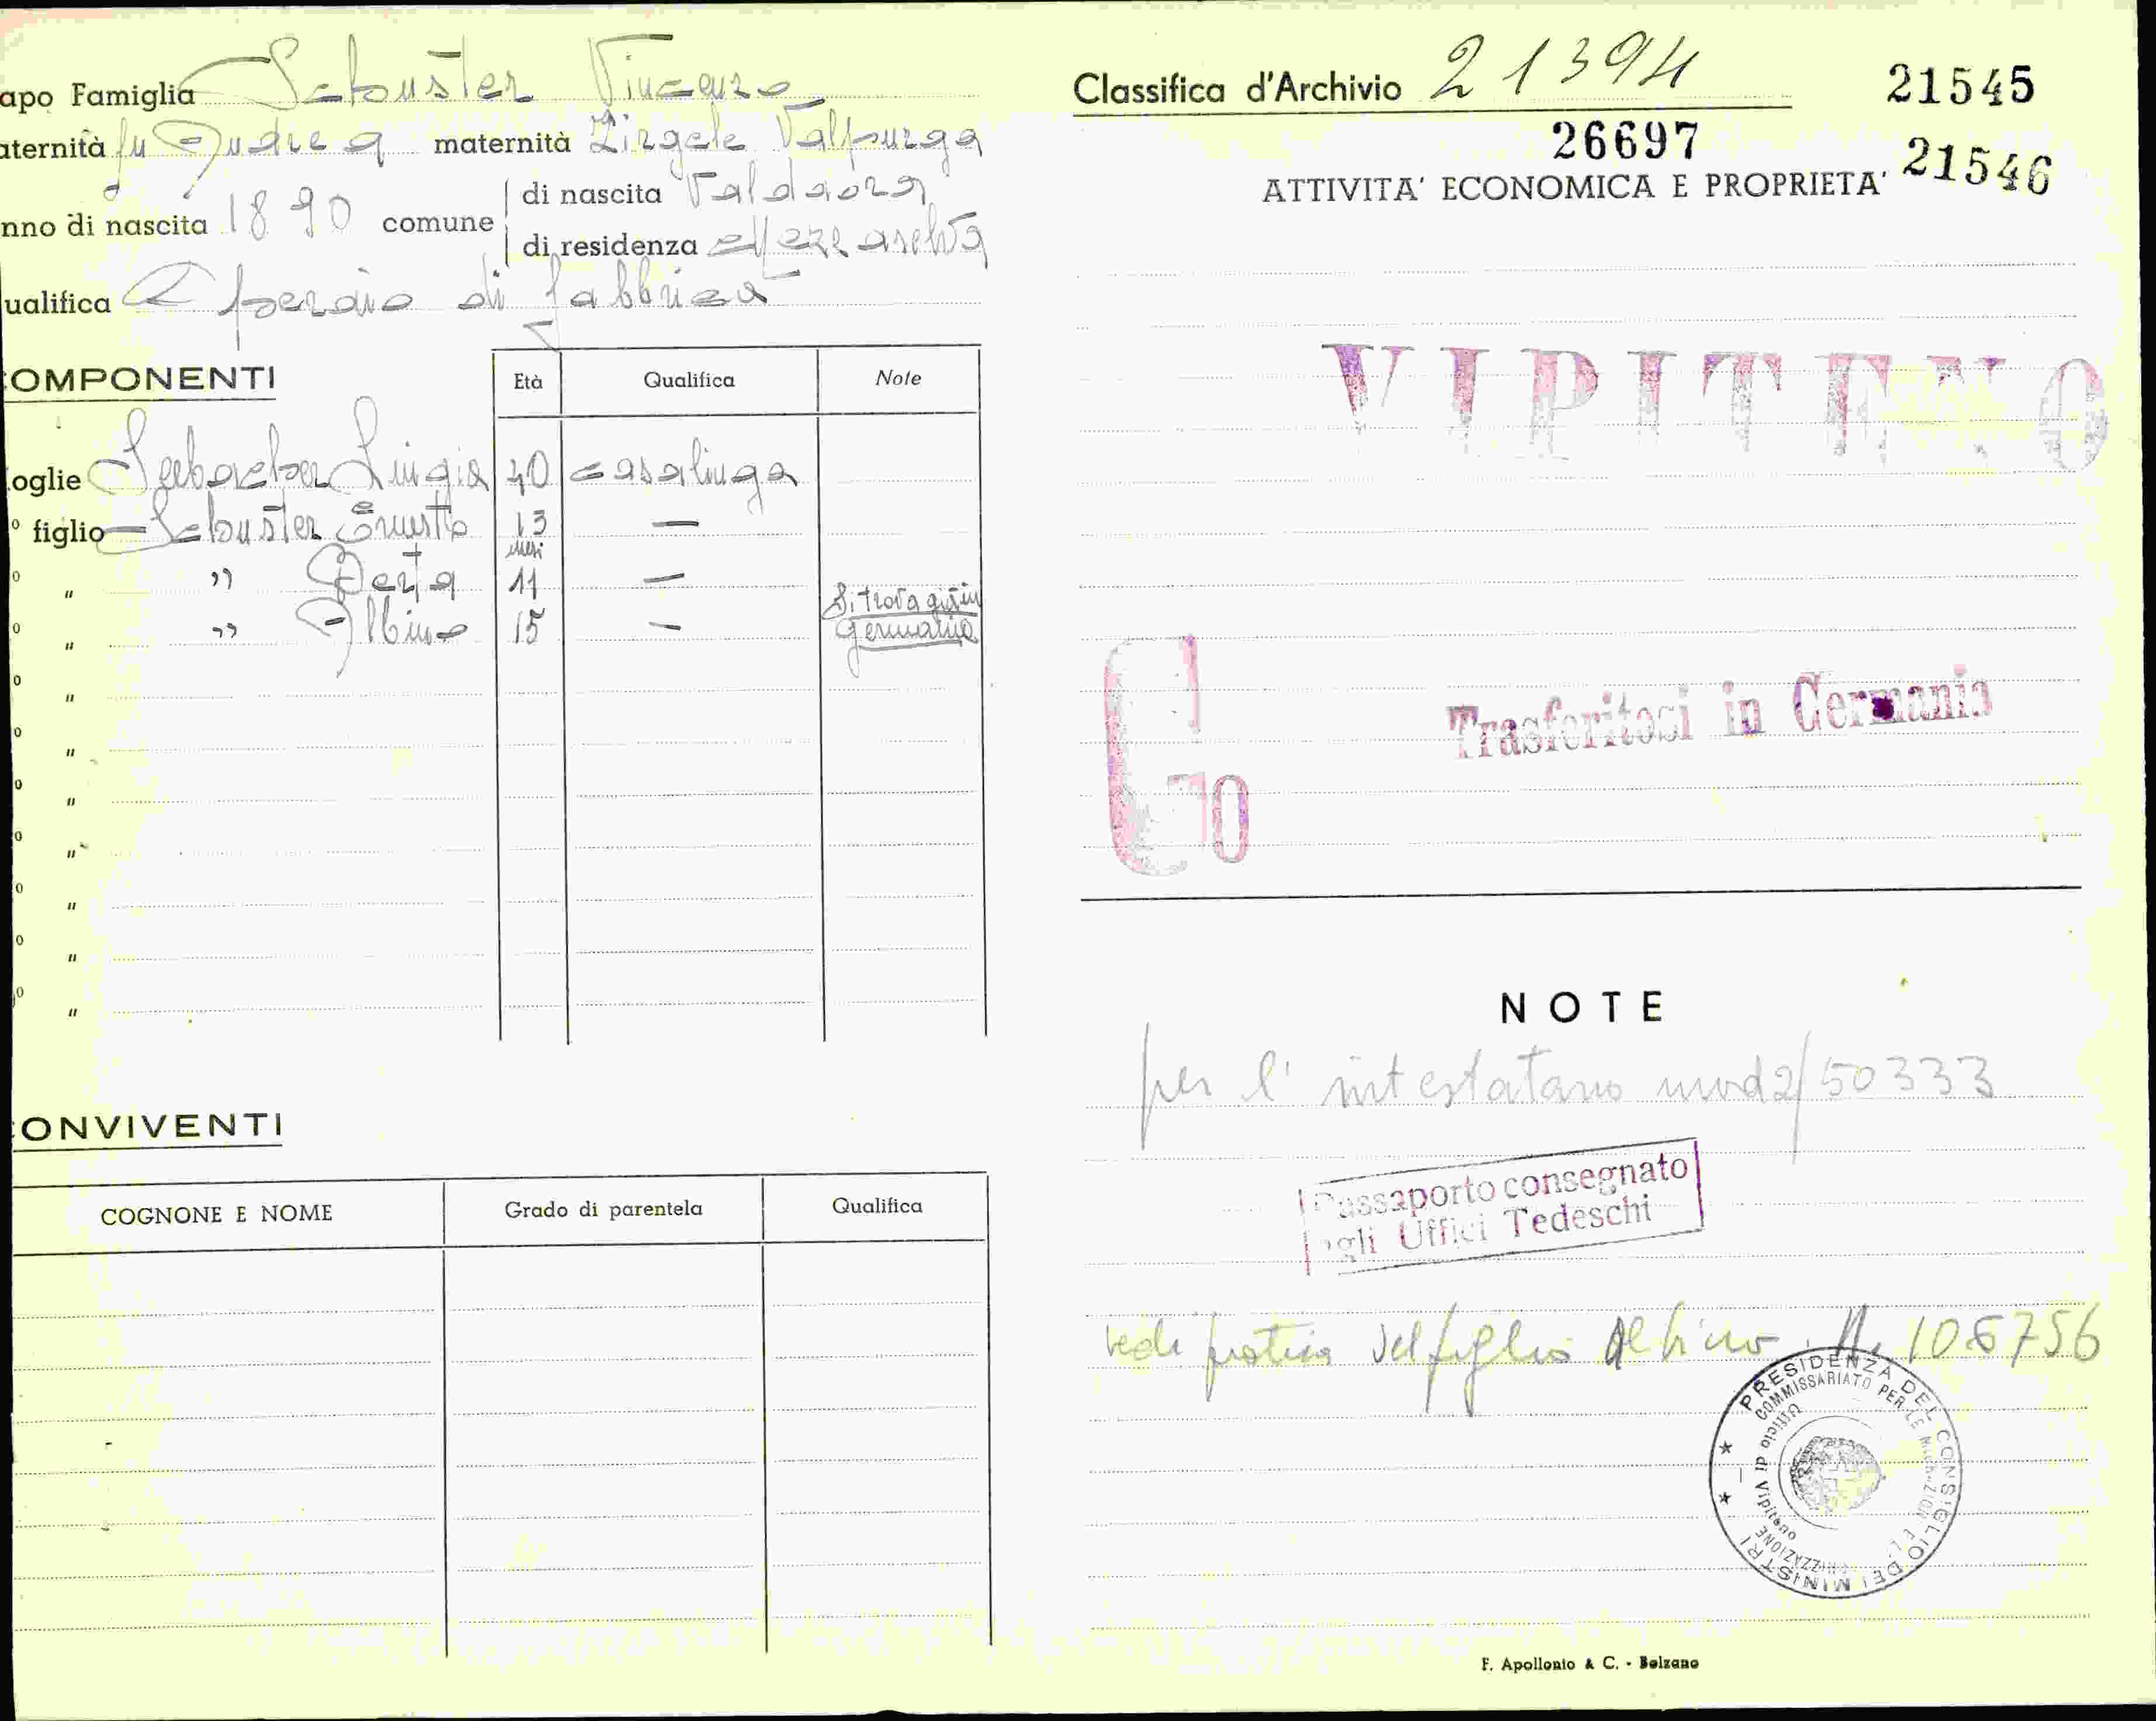 apo Famiglia Schuster Vincenzo
aternità fu Andrea maternità Zingerle Valpurga
nno di nascita 1890 comune di nascita Valdaora
di residenza Mezzaselva
ualifica Operaio di fabbrica
OMPONENTI Età Qualifica Note
oglie Luigia 40 casalinga
° figlio Schuster Ernesto 13 —
mesi
° " " Berta 11 —
° " " Albino 15 — Si trova già in Germania
° "
° "
° "
° "
° "
° "
° "
ONVIVENTI
COGNONE E NOME Grado di parentela Qualifica
Classifica d'Archivio 21394
21545
26697
21546
ATTIVITA' ECONOMICA E PROPRIETA'
VIPITENO
Trasferitosi in Germania
C 10
NOTE
per l'intestatario mod 2/50333
Passaporto consegnato
agli Uffici Tedeschi
vedi pratica del figlio Albino N. 106756
PRESIDENZA DEL CONSIGLIO DEI MINISTRI
COMMISSARIATO PER LE
Ufficio di Vipiteno
F. Apollonio & C. - Bolzano